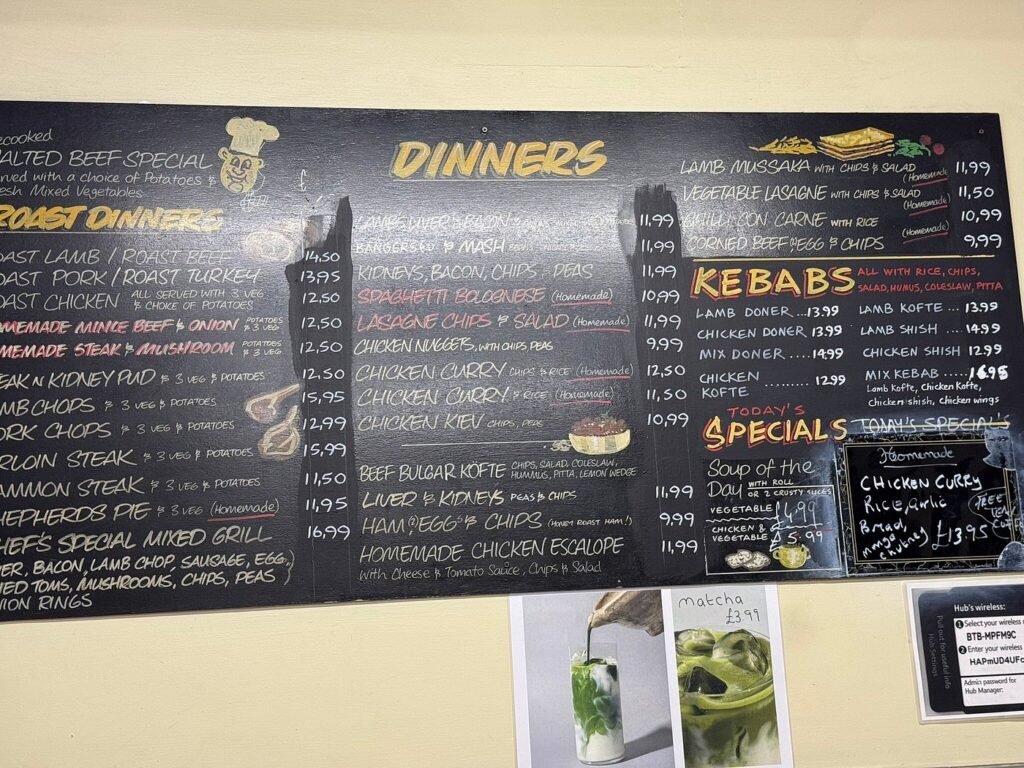 ecooked
ALTED BEEF SPECIAL
rved with a choice of Potatoes &
esh Mixed Vegetables
£
ROAST DINNERS
OAST LAMB / ROAST BEEF 14,50
OAST PORK / ROAST TURKEY 13,95
OAST CHICKEN ALL SERVED WITH 3 VEG & CHOICE OF POTATOES 12,50
MEMADE MINCE BEEF & ONION POTATOES & 3 VEG 12,50
MEMADE STEAK & MUSHROOM POTATOES & 3 VEG 12,50
EAK N KIDNEY PUD & 3 VEG & POTATOES 12,50
MB CHOPS & 3 VEG & POTATOES 15,95
ORK CHOPS & 3 VEG & POTATOES 12,99
RLOIN STEAK & 3 VEG & POTATOES 15,99
AMMON STEAK & 3 VEG & POTATOES 11,50
HEPHERDS PIE & 3 VEG (Homemade) 11,95
HEF'S SPECIAL MIXED GRILL 16,99
ER, BACON, LAMB CHOP, SAUSAGE, EGG,
IED TOMS, MUSHROOMS, CHIPS, PEAS
NION RINGS
DINNERS
LAMBS LIVER & BACON 11,99
BANGERS & MASH 11,99
KIDNEYS, BACON, CHIPS, PEAS 11,99
SPAGHETTI BOLOGNESE (Homemade) 10,99
LASAGNE CHIPS & SALAD (Homemade) 11,99
CHICKEN NUGGETS, WITH CHIPS PEAS 9,99
CHICKEN CURRY CHIPS & RICE (Homemade) 12,50
CHICKEN CURRY & RICE (Homemade) 11,50
CHICKEN KIEV CHIPS, PEAS 10,99
BEEF BULGAR KÖFTE CHIPS, SALAD, COLESLAW, HUMMUS, PITTA, LEMON WEDGE
LIVER & KIDNEYS PEAS & CHIPS 11,99
HAM (2) EGGS & CHIPS (HONEY ROAST HAM!) 9,99
HOMEMADE CHICKEN ESCALOPE 11,99
with Cheese & Tomato Sauce, Chips & Salad
LAMB MUSSAKA WITH CHIPS & SALAD (Homemade) 11,99
VEGETABLE LASAGNE WITH CHIPS & SALAD (Homemade) 11,50
CHILLI CON CARNE WITH RICE (Homemade) 10,99
CORNED BEEF (2) EGG & CHIPS 9,99
KEBABS ALL WITH RICE, CHIPS,
SALAD, HUMUS, COLESLAW, PITTA
LAMB DONER ...13.99
CHICKEN DONER 13.99
MIX DONER .... 14.99
CHICKEN KOFTE ......... 12.99
LAMB KOFTE .... 13.99
LAMB SHISH .... 14.99
CHICKEN SHISH 12.99
MIX KEBAB .... 16.95
Lamb Kofte, Chicken Kofte,
Chicken shish, Chicken wings
TODAY'S
SPECIALS
TODAY'S SPECIAL'S
SOUP OF THE
DAY WITH ROLL
OR 2 CRUSTY SLICES
VEGETABLE £4.99
CHICKEN &
VEGETABLE £5.99
Homemade
CHICKEN CURRY
Rice, Garlic
Bread,
mango
Chutney £13.95
matcha
£3.99
Hub's wireless:
1 Select your wireless
BTB-MPFM9C
2 Enter your wireless
HAPmUD4UFc
Admin password for
Hub Manager:
Pull out for useful info
Hub Settings